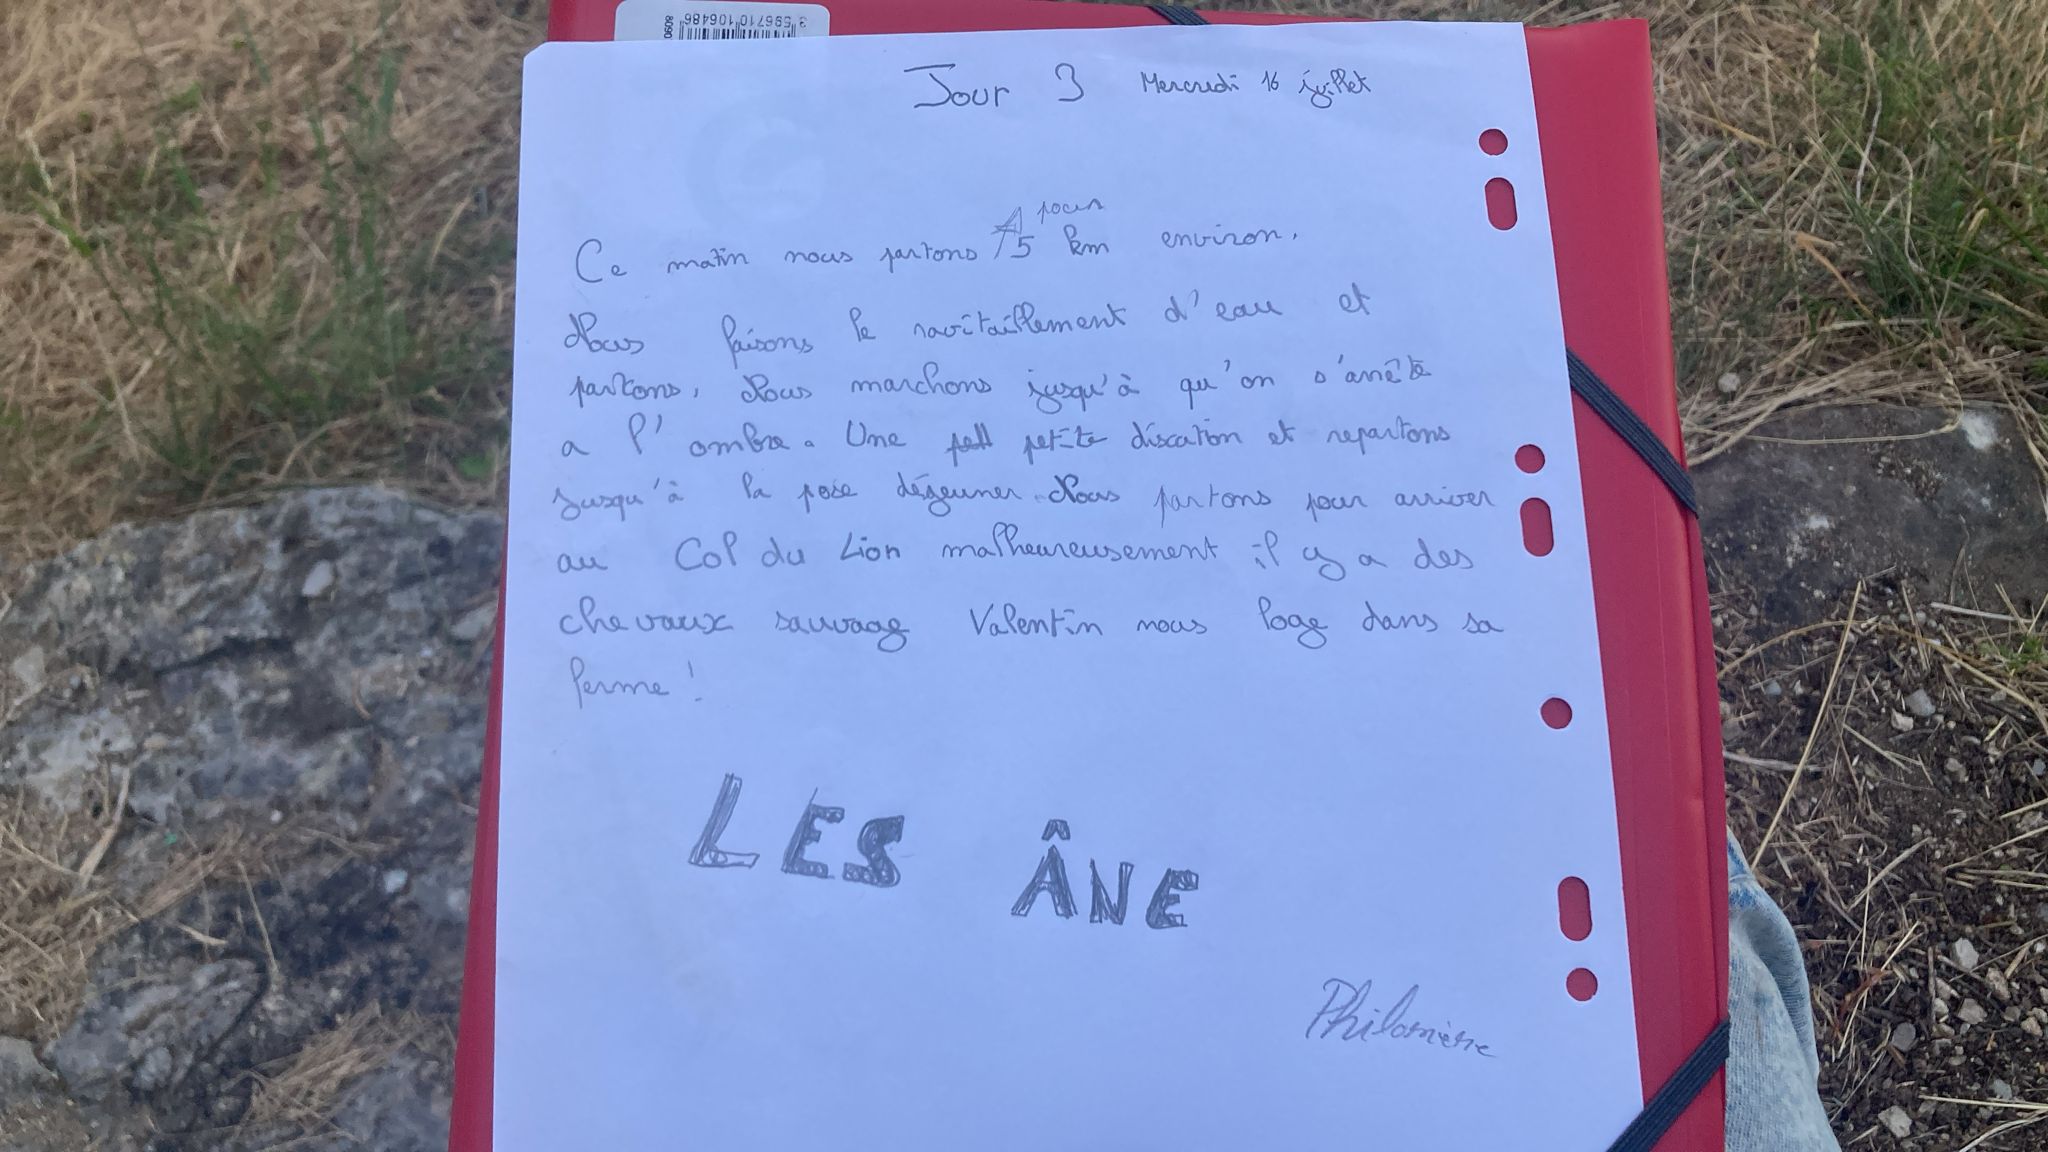 3 596710 106486
8090
Jour 3 Mercredi 16 juillet
pour
Ce matin nous partons 15 km environ.
Nous faisons le ravitaillement d'eau et
partons. Nous marchons jusqu'à qu'on s'arrête
a l'ombre. Une petite discution et repartons
jusqu'à la pose déjeuner. Nous partons pour arriver
au Col du Lion malheureusement il y a des
chevaux sauvage Valentin nous loge dans sa
ferme !
LES ÂNE
Philomène